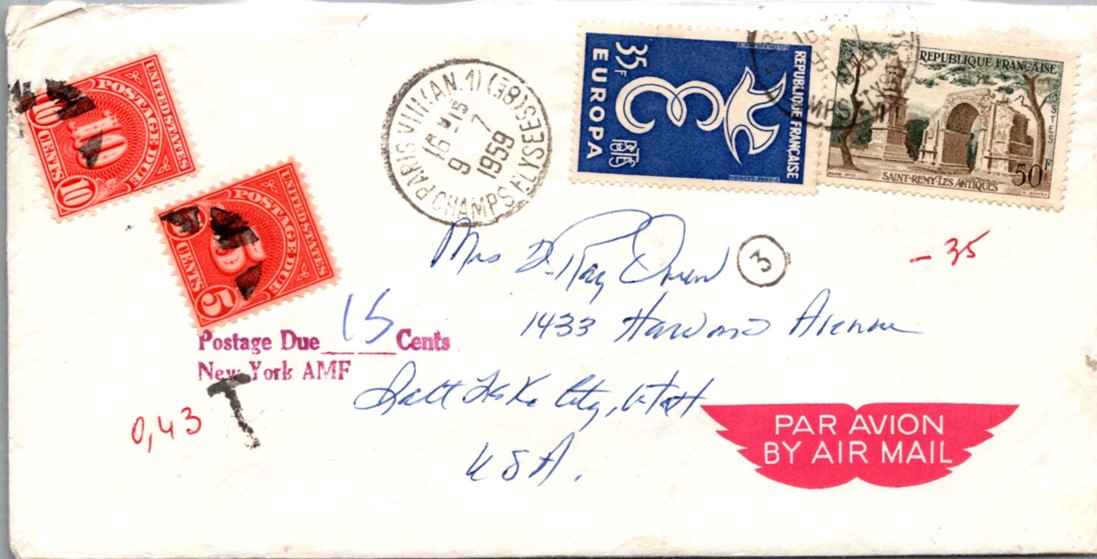 UNITED STATES
POSTAGE DUE
10
10 CENTS 10
UNITED STATES
POSTAGE DUE
5
5 CENTS 5
PARIS VIII (AN.1) (8E)
16 H 15
9 7
1959
CHAMPS ELYSEES
REPUBLIQUE FRANÇAISE
35F
EUROPA
E
REPUBLIQUE FRANÇAISE
POSTES
SAINT-REMY-LES ANTIQUES
50F
Mrs D. Ray Owen
3
- 35
1433 Harvard Avenue
Postage Due 15 Cents
New York AMF
Salt Lake City, Utah
T
0,43
USA.
PAR AVION
BY AIR MAIL